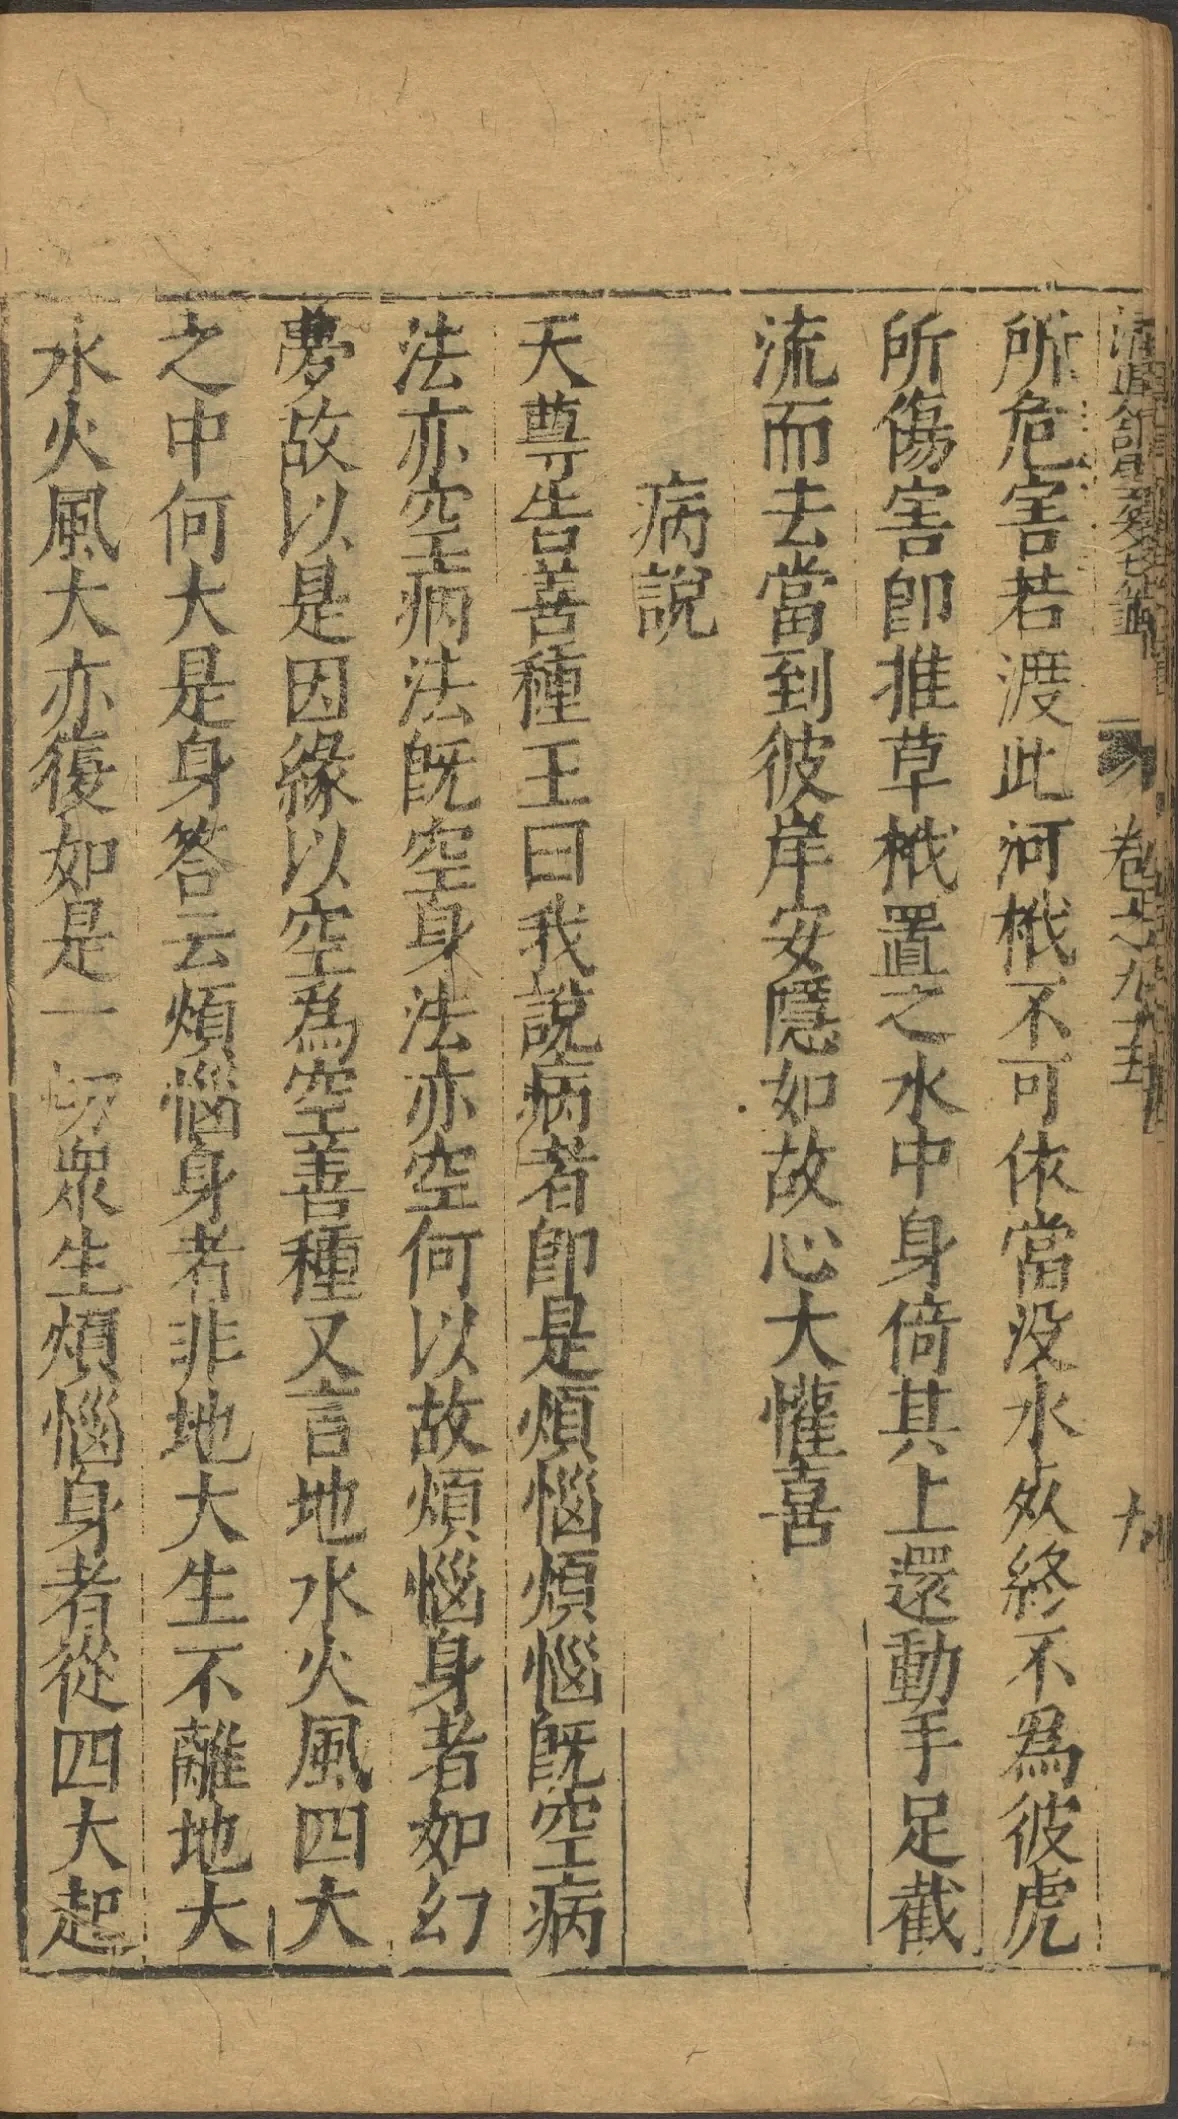 卷之九十五
九
所危害若渡此河栰不可依當没水死終不爲彼虎
所傷害卽推草栰置之水中身倚其上還動手足截
流而去當到彼岸安隱如故心大懽喜
病說
天尊告善種王曰我說病者卽是煩惱煩惱旣空病
法亦空病法旣空身法亦空何以故煩惱身者如幻
夢故以是因緣以空爲空善種又言地水火風四大
之中何大是身答云煩惱身者非地大生不離地大
水火風大亦復如是一切衆生煩惱身者從四大起